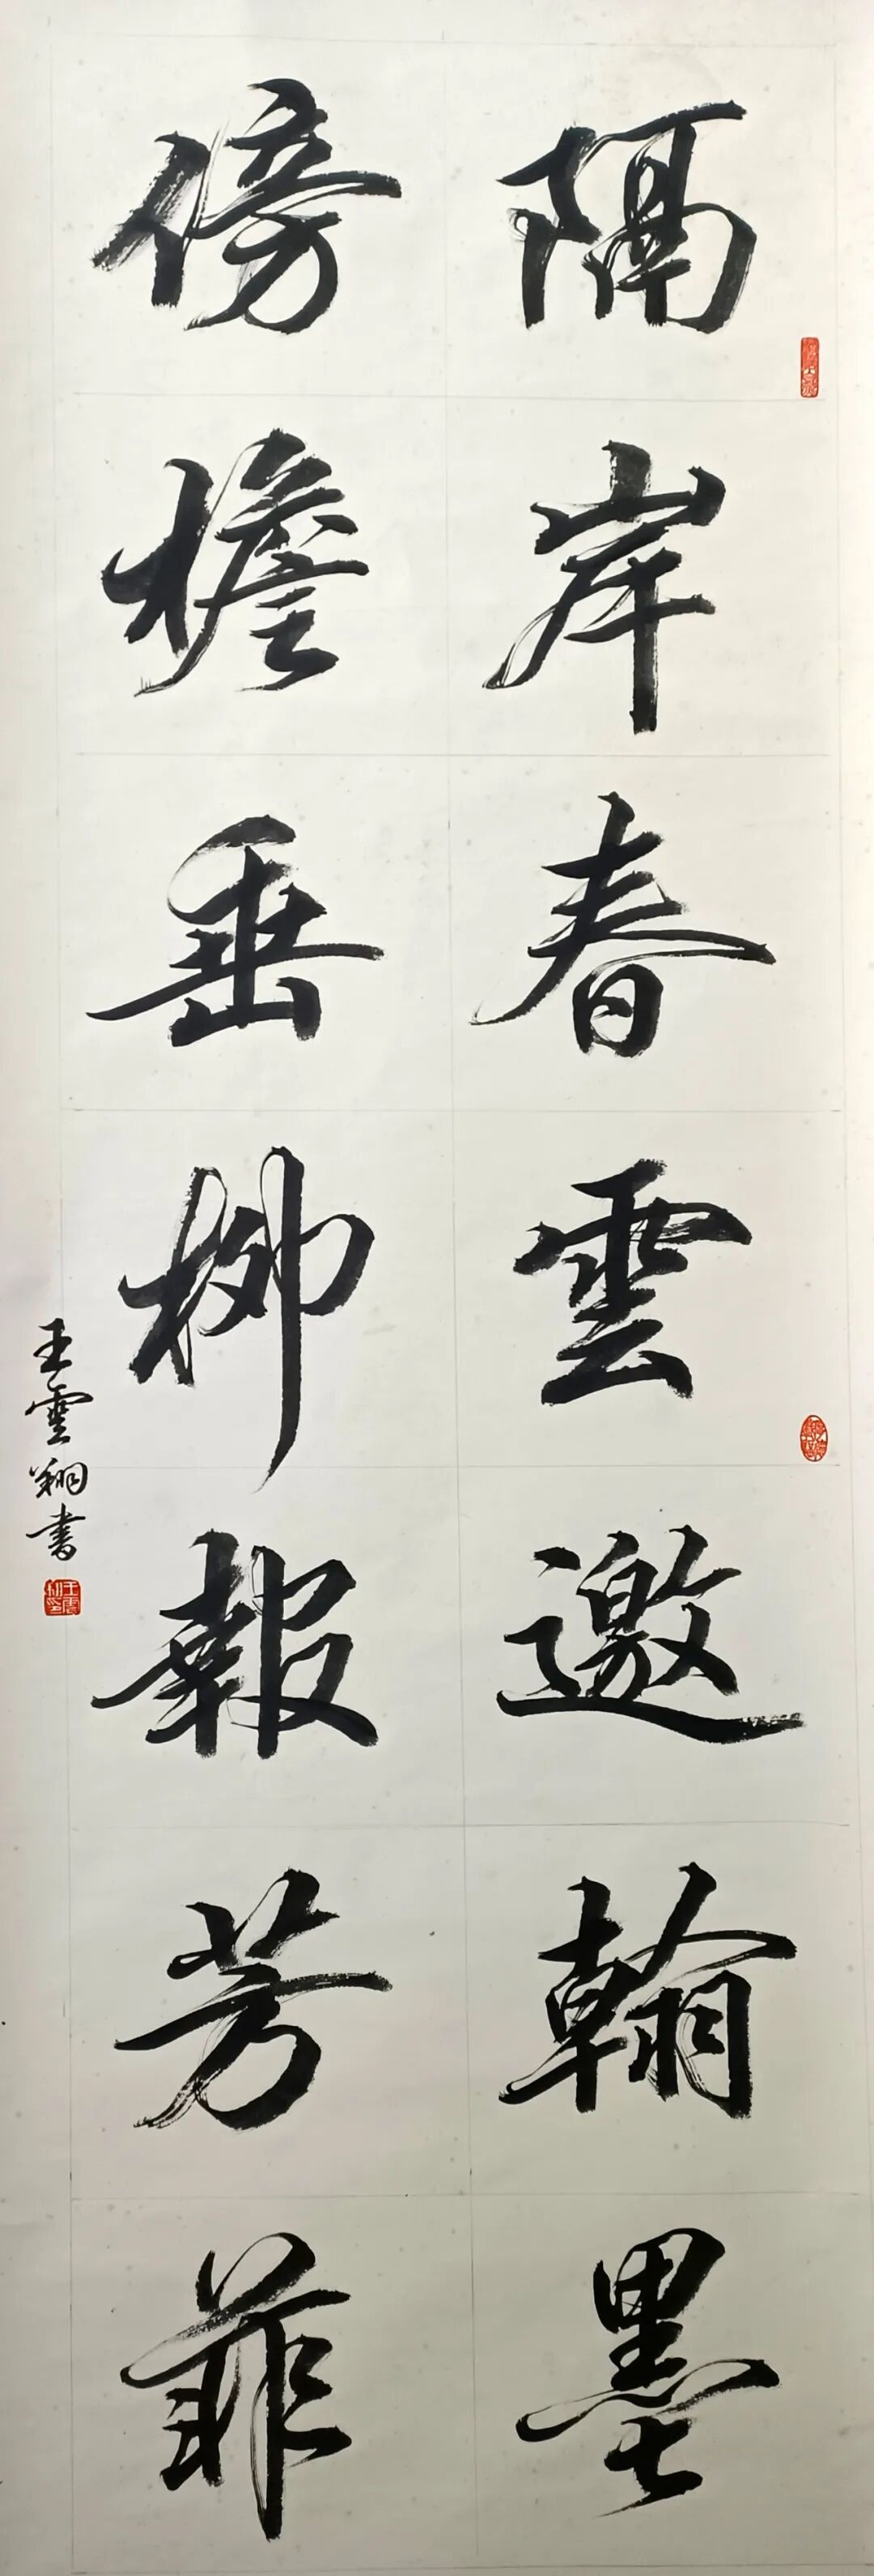 隔岸春雲邀翰墨
傍檐垂柳報芳菲
王雲翔书